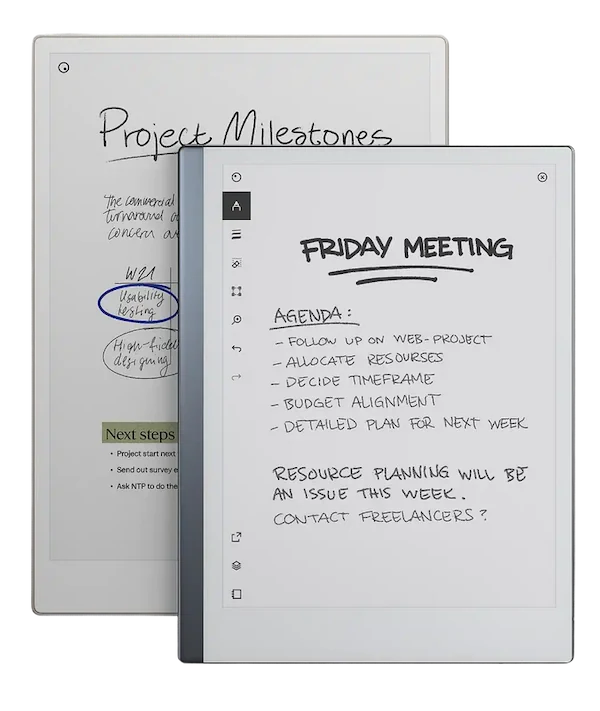 Project Milestones
The commercial
turnaround
concern
W21
Usability
testing
High-fidel
designing
Next steps
• Project start next
• Send out survey e
• Ask NTP to do the
FRIDAY MEETING
AGENDA:
- FOLLOW UP ON WEB-PROJECT
- ALLOCATE RESOURSES
- DECIDE TIMEFRAME
- BUDGET ALIGNMENT
- DETAILED PLAN FOR NEXT WEEK
RESOURCE PLANNING WILL BE
AN ISSUE THIS WEEK.
CONTACT FREELANCERS?